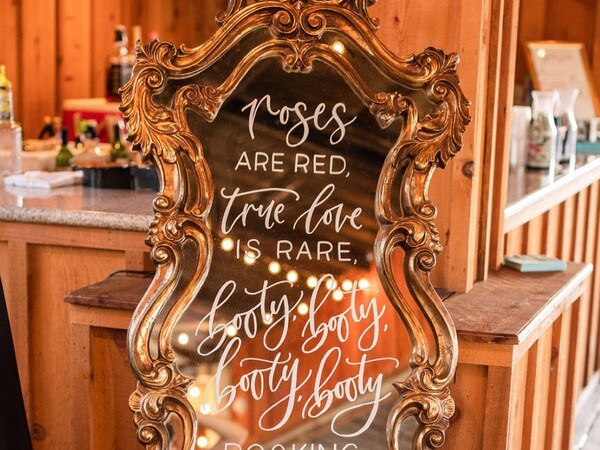 roses
ARE RED,
true love
IS RARE,
booty, booty,
booty, booty
ROCKING